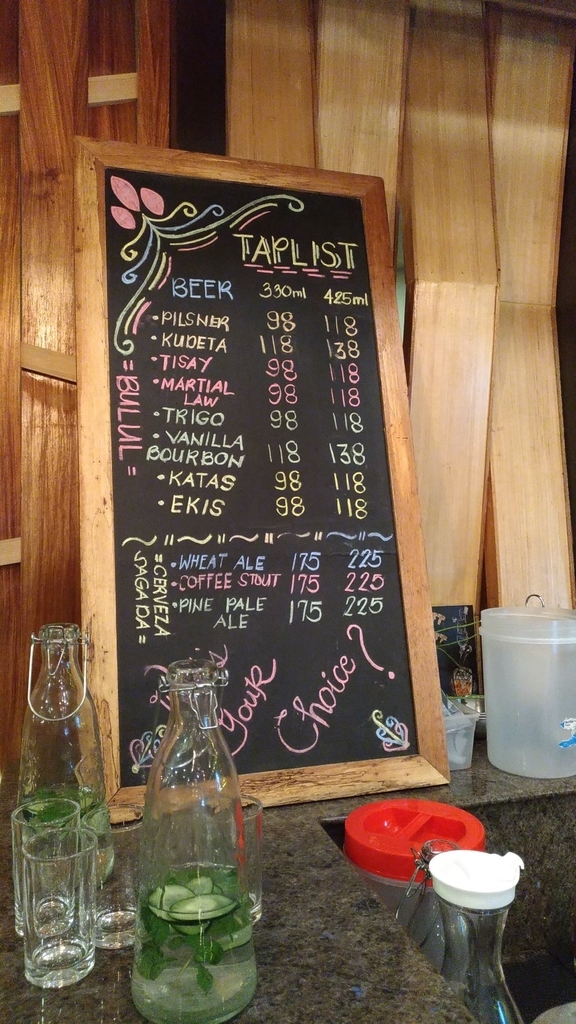 TAPLIST
BEER 330ml 425ml
= BULUL =
• PILSNER 98 118
• KUDETA 118 138
• TISAY 98 118
• MARTIAL
LAW 98 118
• TRIGO 98 118
• VANILLA
BOURBON 118 138
• KATAS 98 118
• EKIS 98 118
= CERVEZA
SAGADA =
• WHEAT ALE 175 225
• COFFEE STOUT 175 225
• PINE PALE
ALE 175 225
Your
Choice?